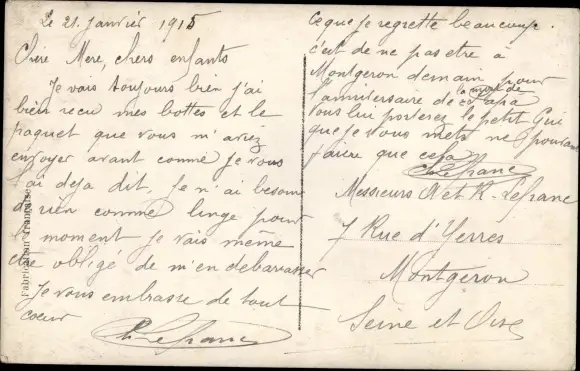 Le 21 janvier 1915
Chère Mere, chers enfants
Je vais toujours bien j'ai
bien recu mes bottes et le
paquet que vous m'avez
envoyer avant comme je vous
l'ai deja dit, je n'ai besoin
de rien comme linge pour
le moment je vais même
etre obligé de m'en debarasser
Je vous embrasse de tout
coeur
Lefranc
Fabrication française
Ce que je regrette beaucoup.
c'est de ne pas etre à
Montgeron demain pour
l'annitersaire de la mort de Papa
vous lui porterez le petit Gui
que je vous mets ne pouvant
faire que cela
Lefranc
Messieurs A et R. Lefranc
7 Rue d'Yerres
Montgeron
Seine et Oise